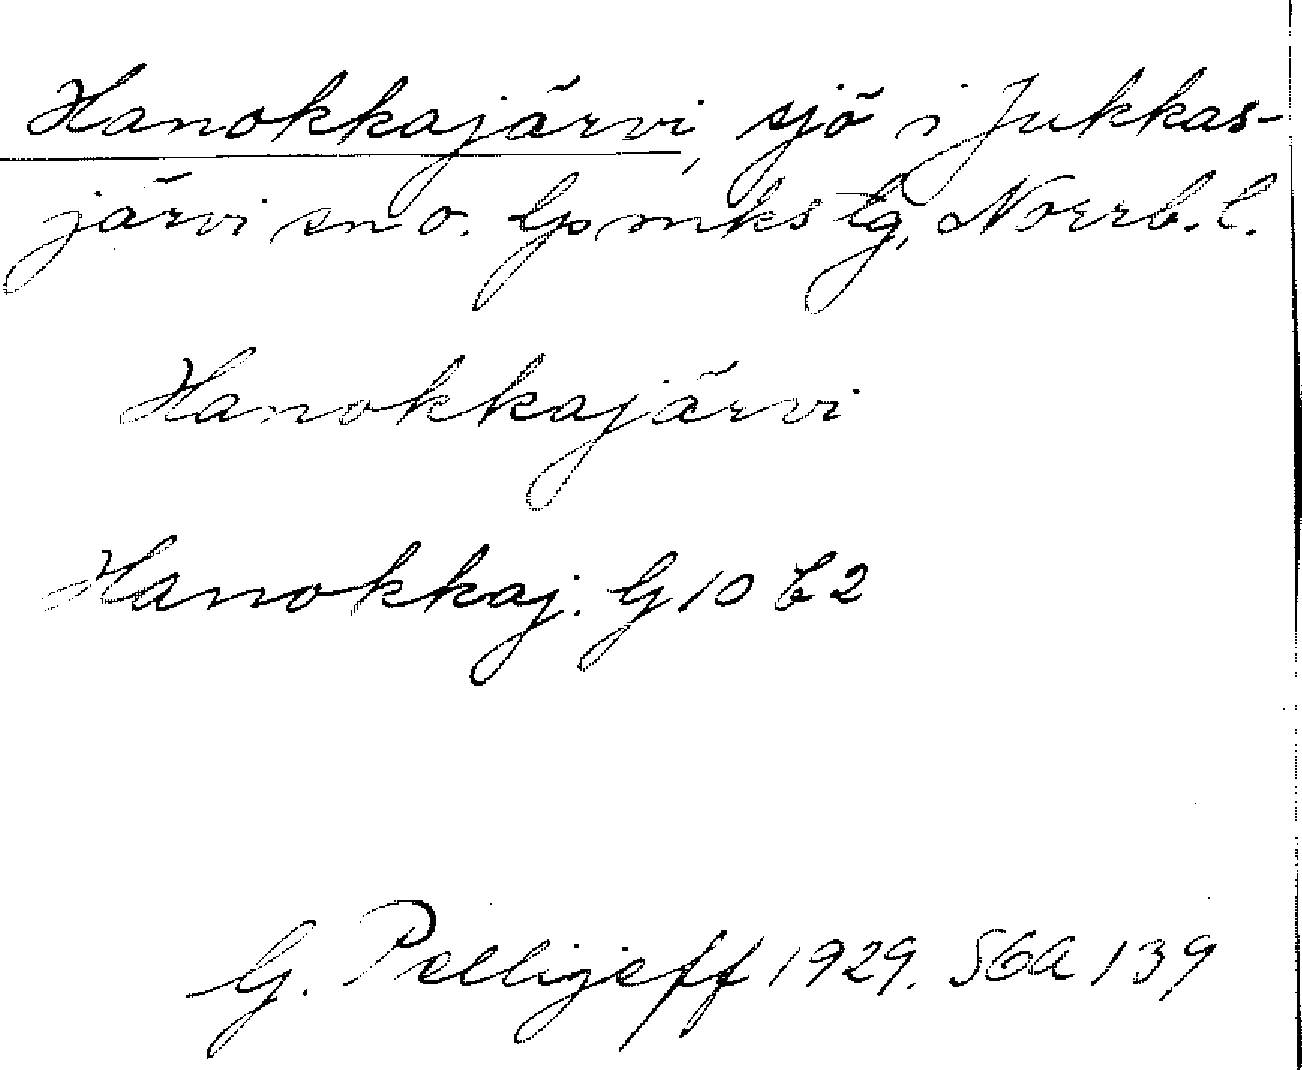 Hanokkajärvi, sjö i Jukkas-
järvi sn o. lpmkstg, Norrb. l.
Hanokkajärvi
Hanokkaj. G 10 b 2
G. Pellijeff 1929. SGA 139